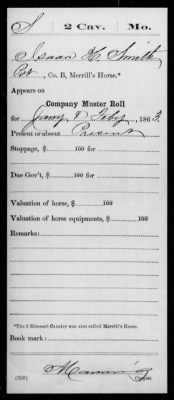 S 2 Cav. Mo.
Isaac H. Smith
Pvt, Co. B, Merrill's Horse.*
Appears on
Company Muster Roll
for Jany & Feby, 1863.
Present or absent Present
Stoppage, $ 100 for
Due Gov't, $ 100 for
Valuation of horse, $ 100
Valuation of horse equipments, $ 100
Remarks:
*The 2 Missouri Cavalry was also called Merrill's Horse.
Book mark:
(858)
Copyist.